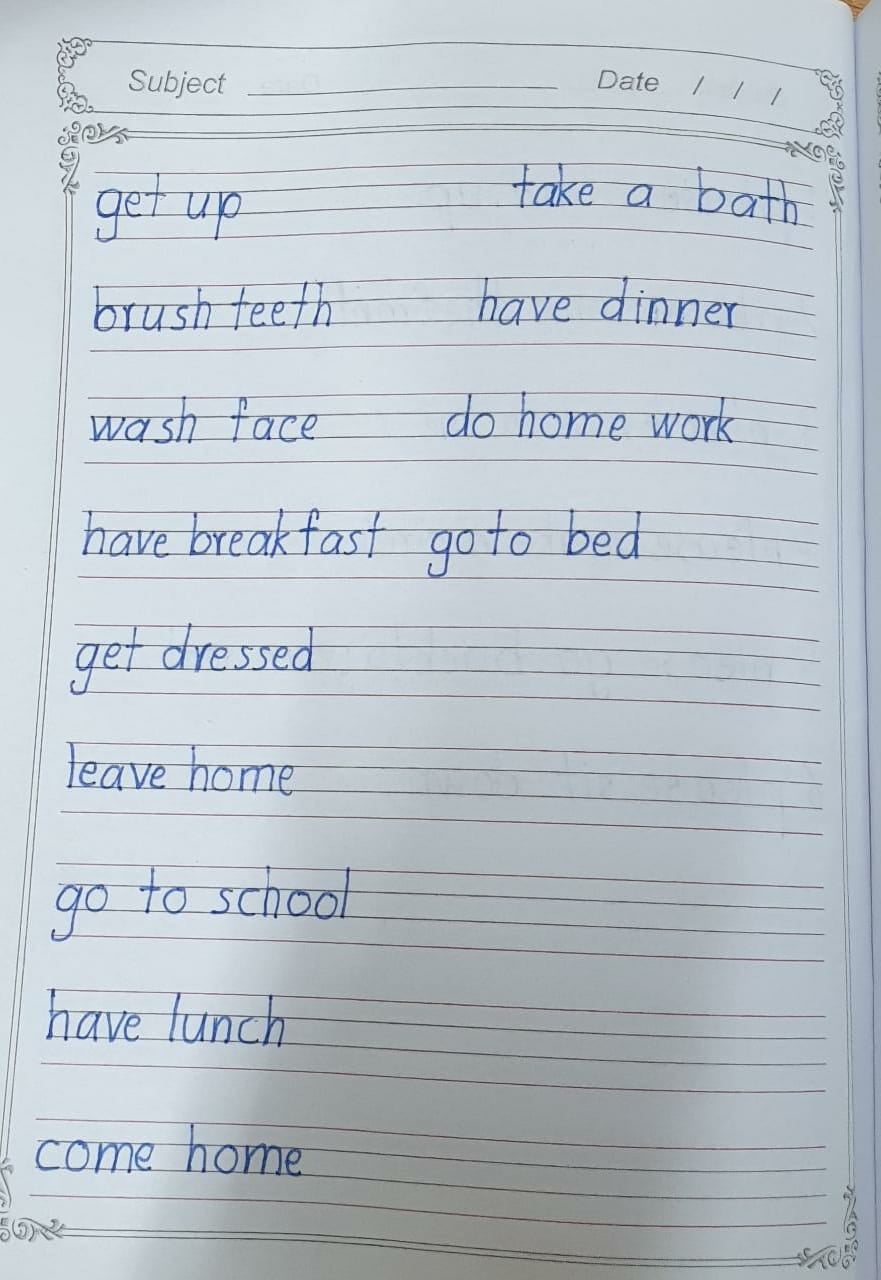 Subject Date / / /
get up take a bath
brush teeth have dinner
wash face do home work
have breakfast go to bed
get dressed
leave home
go to school
have lunch
come home